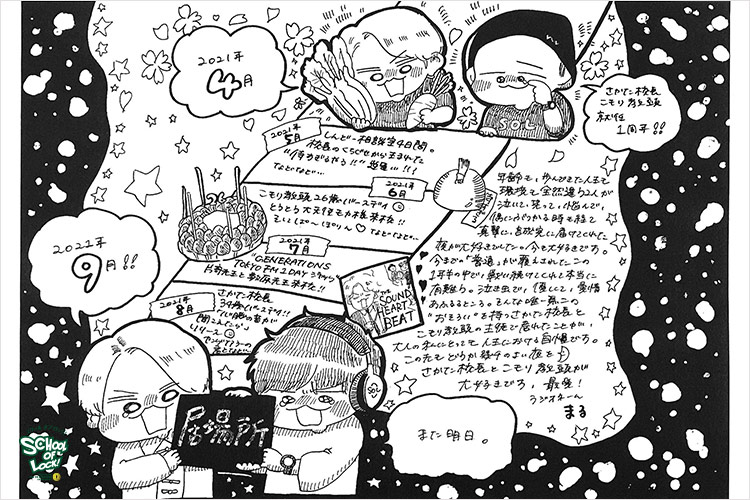 2021年
4月
SOL
さかた校長
こもり教頭
就任
1周年!!
2021年
5月
しんどー相談室4日間。
校長のくちぐせから生まれた
など など など…
2021年
6月
こもり教頭26歳バースデイ
とうとう大天使モカ校長来校!!
など など など…
2021年
7月
"GENERATIONS
TOKYO FM 1DAY ジャック"
片寄先生と数原先生来校!!
2021年
8月
さかた校長
34歳バースデイ!!
"心臓の音が
聞こえたら"
リリース
THE
SOUND
HEARTS
BEAT
年齢も、歩んできた人生も
環境も全然違う2人が
泣いて、笑って、悩んで、
真摯に、
夜が大好きでした。今も大好きです。
今までの"普通"が覆えされたこの
1年半の中でも、戦い続けてくれて本当に
有難う。泣き虫で、優しくて、愛情
あふれるところ。そんな唯一無二の
おもろい を持つさかた校長と
こもり教頭の生徒で居れたことが、
大人の私にとって人生における自慢です。
この先もどうか縁やのよい夜を
さかた校長とこもり教頭が
大好きです。最強!
ラジオネーム
まる
2021年
9月!!
SOL
居場所
また明日。
SCHOOL
OF
LOCK!